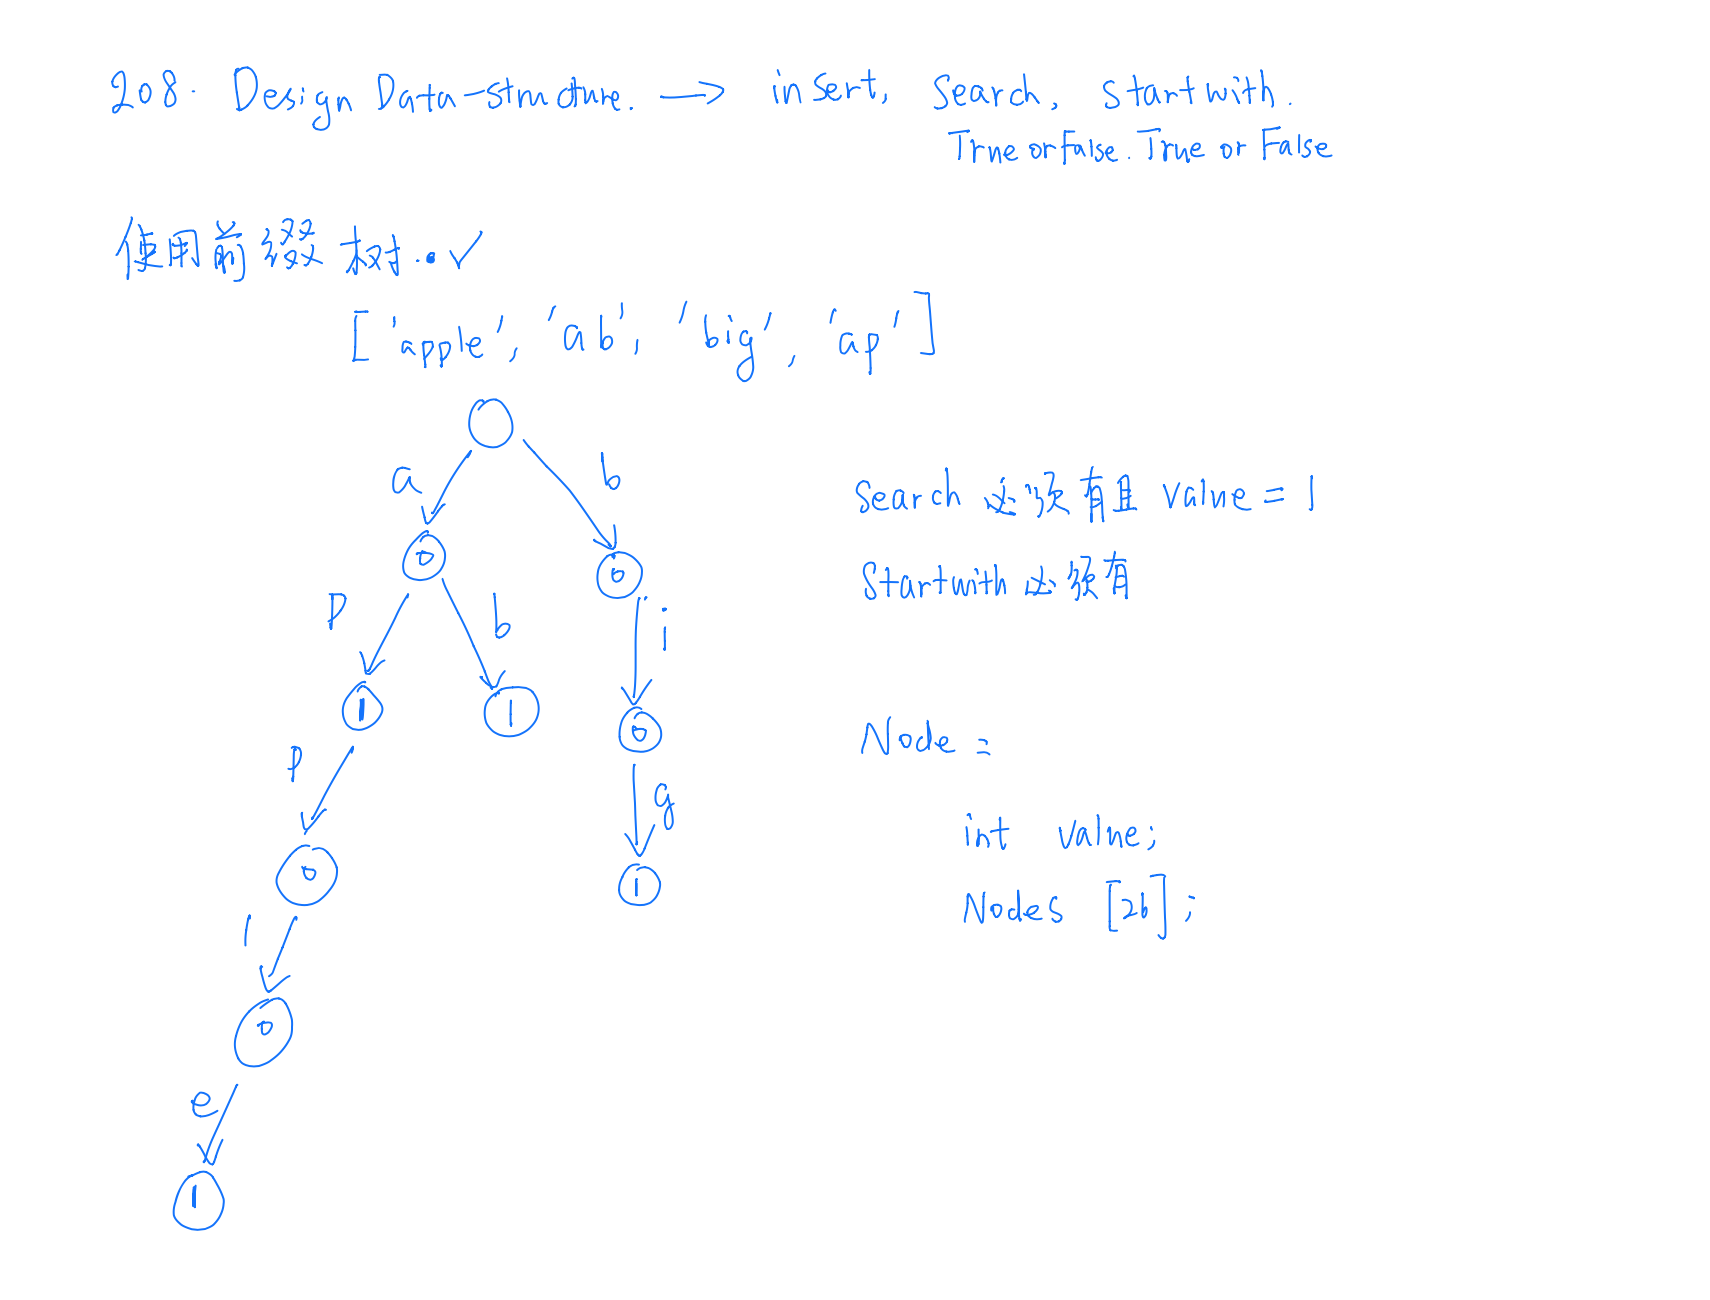 208. Design Data-structure. → insert, Search, Startwith.
True or False. True or False
使用前缀树. ✓
['apple', 'ab', 'big', 'ap']
a
b
0
0
p
b
i
1
1
0
p
g
0
1
l
0
e
1
Search 必须有且 value = 1
Startwith 必须有
Node =
int value;
Nodes [26];